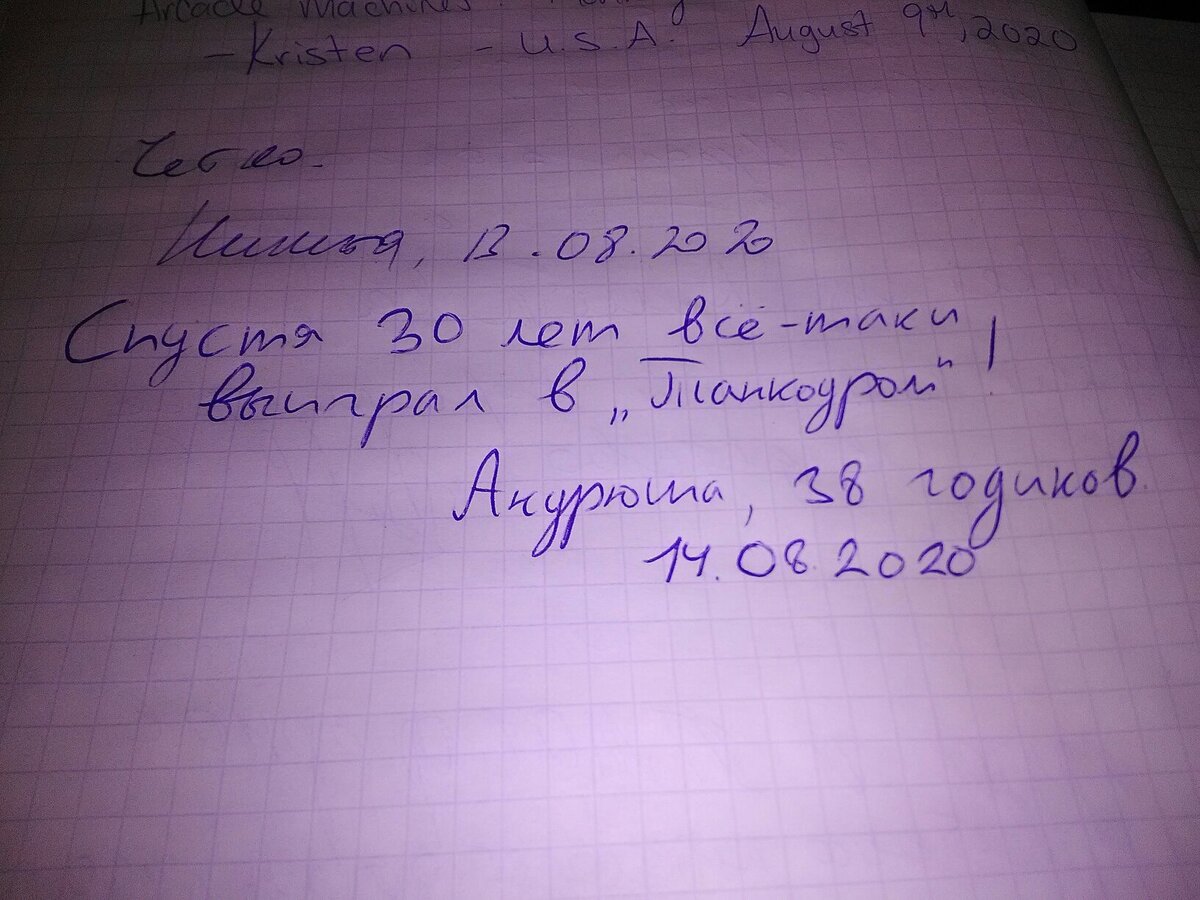 Arcade Machines!
- Kristen - U.S.A. August 9th, 2020
Четко.
13.08.2020
Спустя 30 лет всё-таки
выиграл в „Танкодром“!
Андрюша, 38 годиков.
14.08.2020